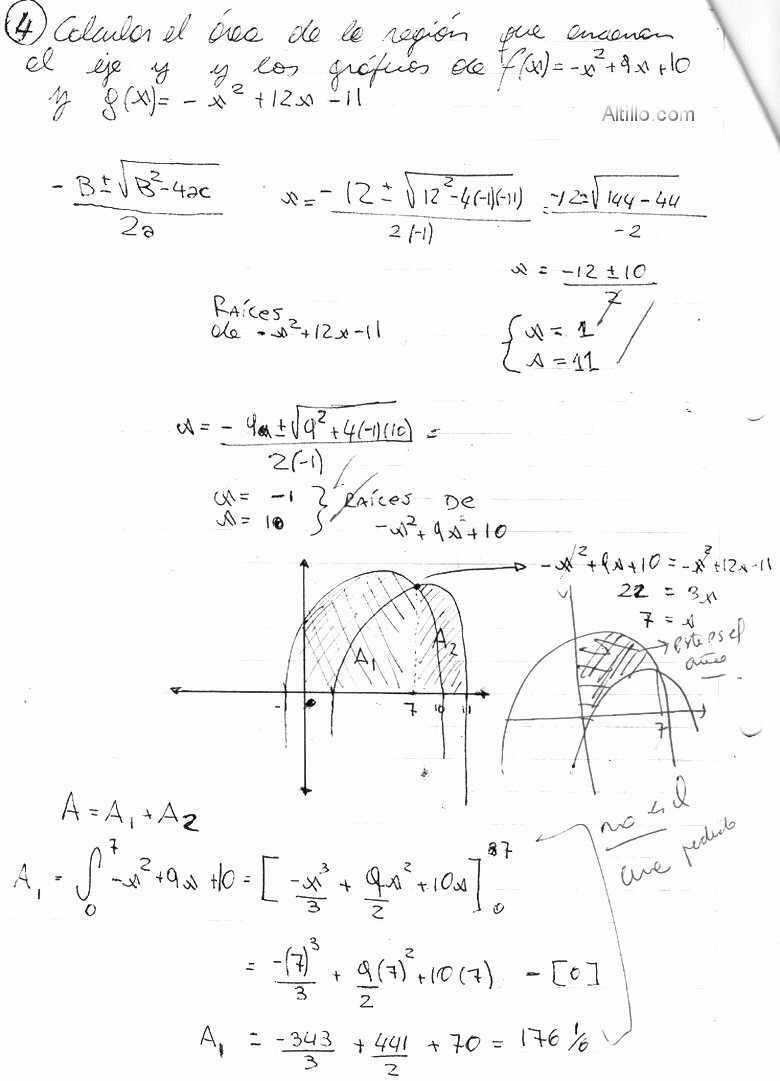 ④ Calcular el área de la región que encierran
el eje y y los gráficos de f(x)=-x²+9x+10
y g(x)= -x²+12x-11
Altillo.com
-B±√B²-4ac / 2a    x= -12 ± √12²-4(-1)(-11) / 2(-1) = -12±√144-44 / -2
x = -12±10 / 2
Raíces
de -x²+12x-11
{ x = 1
x = 11
x = -9 ± √9²+4(-1)(10) / 2(-1) =
x = -1 } Raíces De
x = 10
-x²+9x+10
-x²+9x+10 = -x²+12x-11
22 = 3x
7 = x
este es el
área
A₁
A₂
-1
0
7
10
11
7
A = A₁ + A₂
no es el
área pedida
A₁ = ∫₀⁷ -x²+9x+10 = [ -x³/3 + 9x²/2 + 10x ]₀⁷
= -(7)³/3 + 9(7)²/2 + 10(7) - [0]
A₁ = -343/3 + 441/2 + 70 = 176 1/6